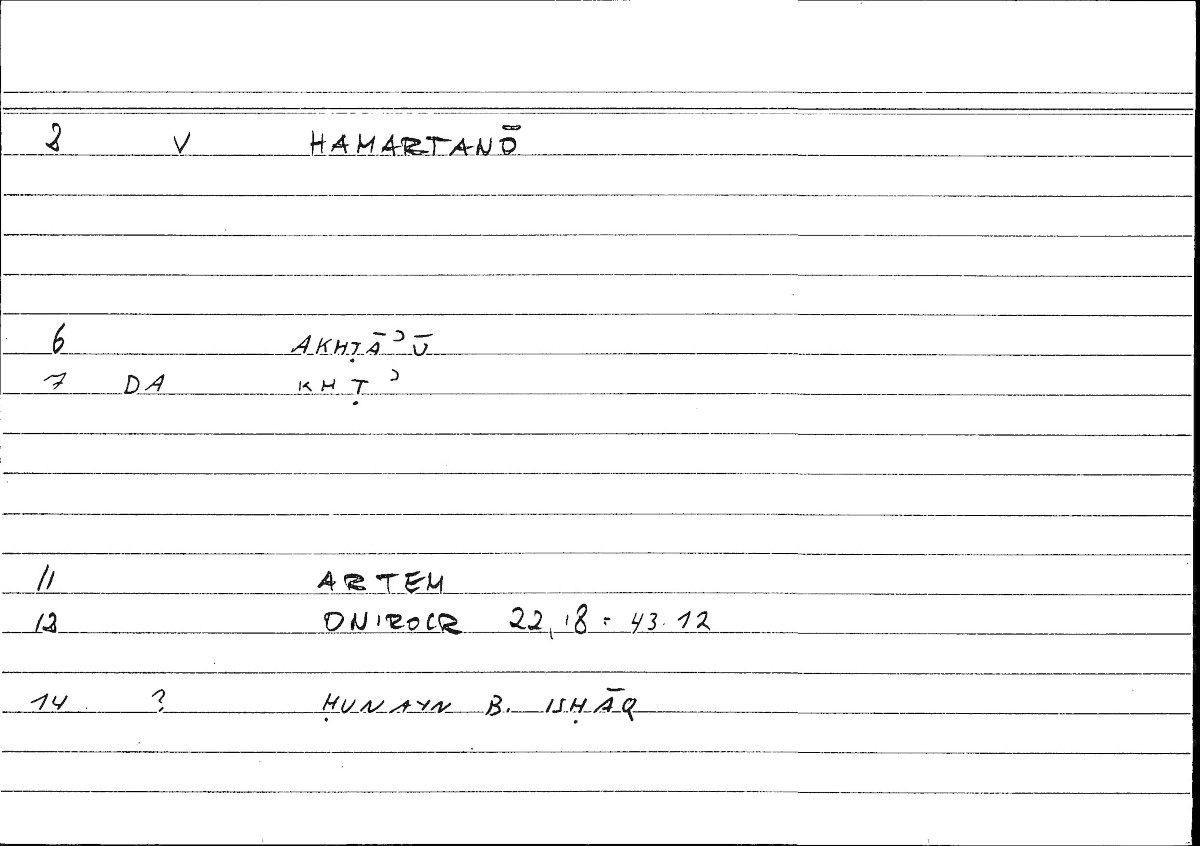 2 V HAMARTANŌ
6 AKHṬĀʾŪ
7 DA KHṬʾ
11 ARTEM
12 ONIROCR 22,18 = 43.12
14 ? ḤUNAYN B. ISḤĀQ